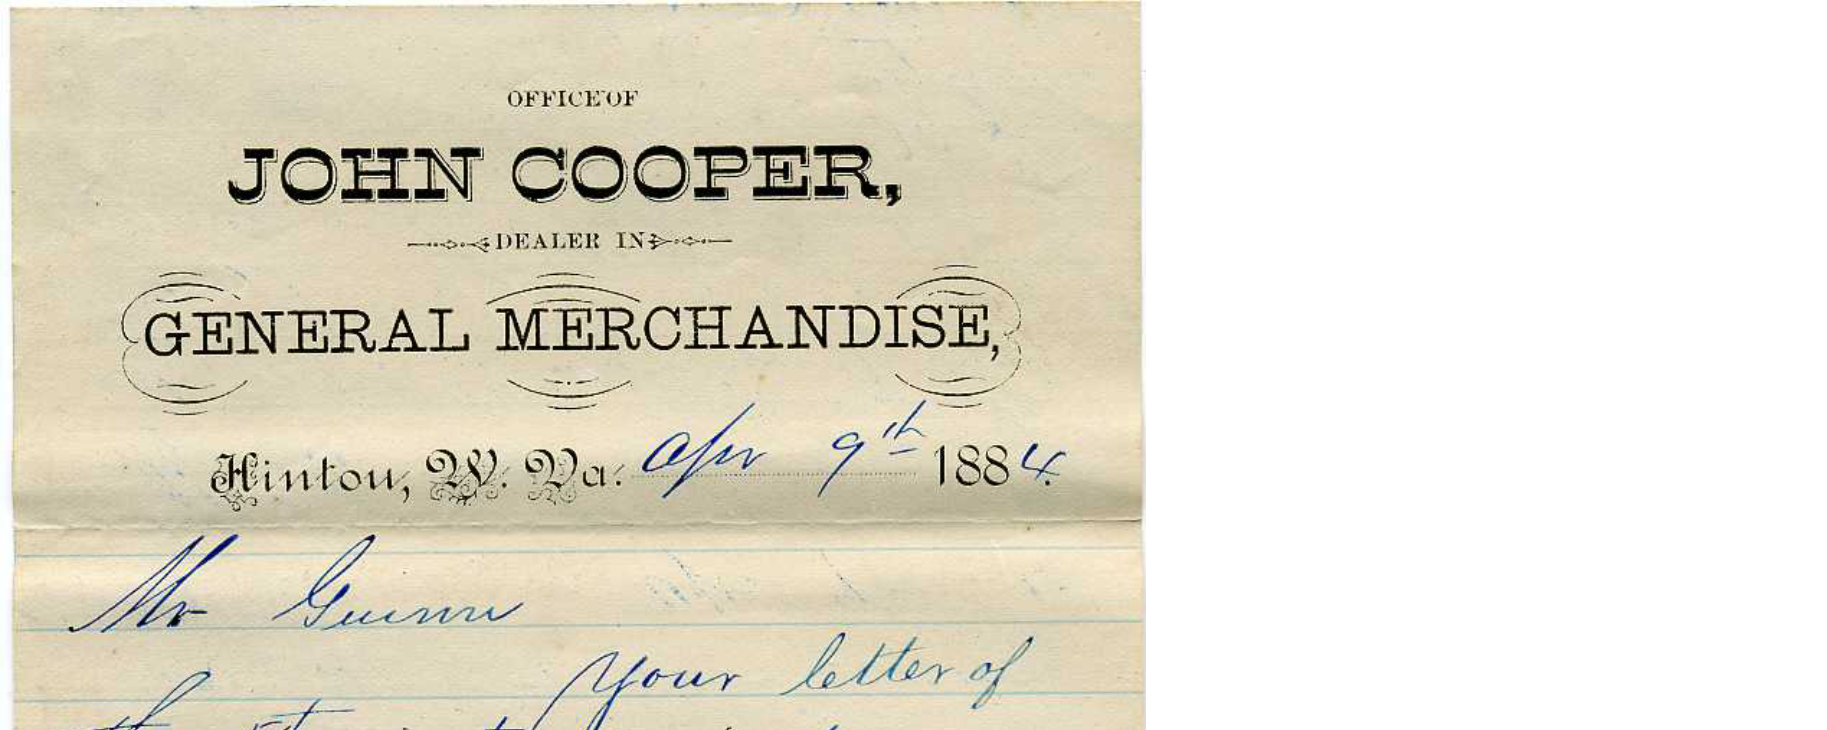 OFFICE OF
JOHN COOPER,
DEALER IN
GENERAL MERCHANDISE,
Hinton, W. Va. Apr 9th 1884.
Mr Guinn
Your letter of